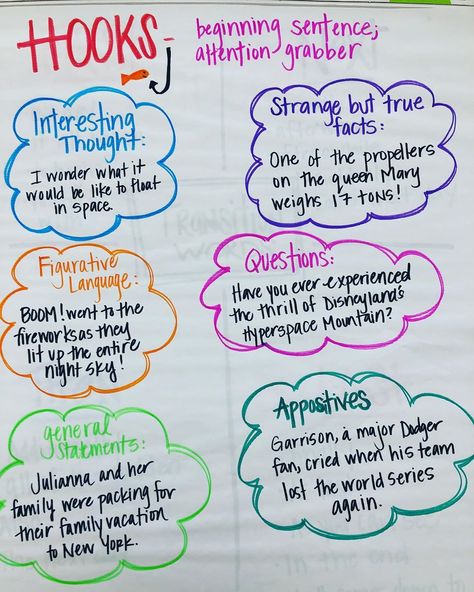 HOOKS-
beginning sentence;
attention grabber
Interesting
Thought:
I wonder what it
would be like to float
in space.
Strange but true
facts:
One of the propellers
on the queen Mary
weighs 17 tons!
Figurative
Language:
BOOM! went to the
fireworks as they
lit up the entire
night sky!
Questions:
Have you ever experienced
the thrill of Disneyland's
Hyperspace Mountain?
general
statements:
Julianna and her
family were packing for
their family vacation
to New York.
Appositives
Garrison, a major Dodger
fan, cried when his team
lost the world series
again.
In the end